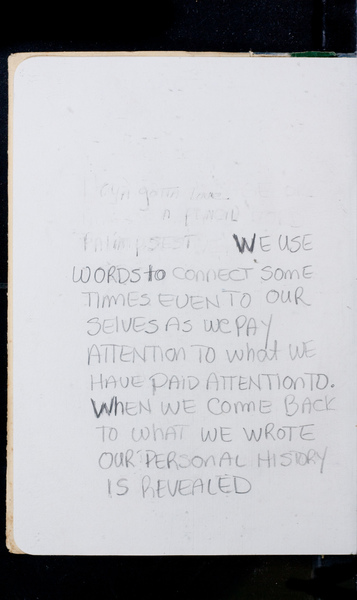 ya gotta love
a pencil
PALIMPSEST WE USE
WORDS to CONNECT SOME
TIMES EVEN TO OUR
SELVES AS WE PAY
ATTENTION TO what WE
HAVE PAID ATTENTION TO.
WHEN WE COME BACK
TO WHAT WE WROTE
OUR PERSONAL HISTORY
IS REVEALED